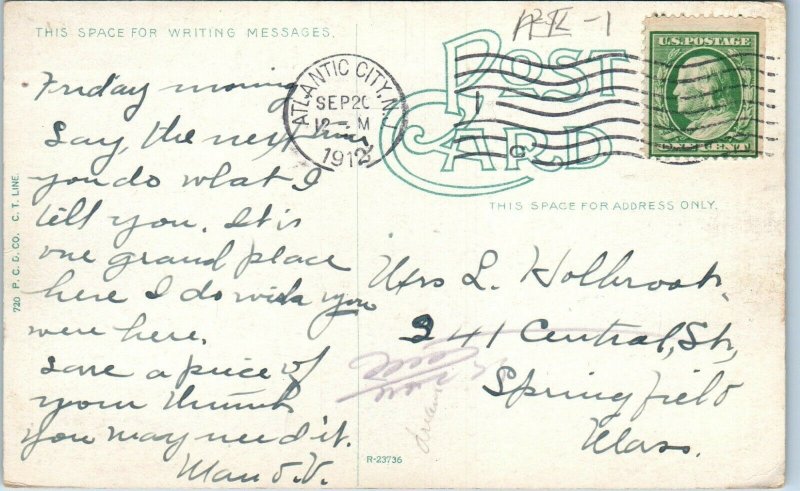 THIS SPACE FOR WRITING MESSAGES.
Friday morning
Say, the next time
you do what I
tell you. It is
one grand place
here I do wish you
were here.
save a piece of
your thumb
you may need it.
720 P. C. D. CO. C. T. LINE.
ATLANTIC CITY, N.J.
SEP 20
12 - M
1912
POST
CARD
U.S. POSTAGE
ONE CENT
THIS SPACE FOR ADDRESS ONLY.
Mrs L. Holbrook,
241 Central, St,
Springfield
Mass.
R-23736